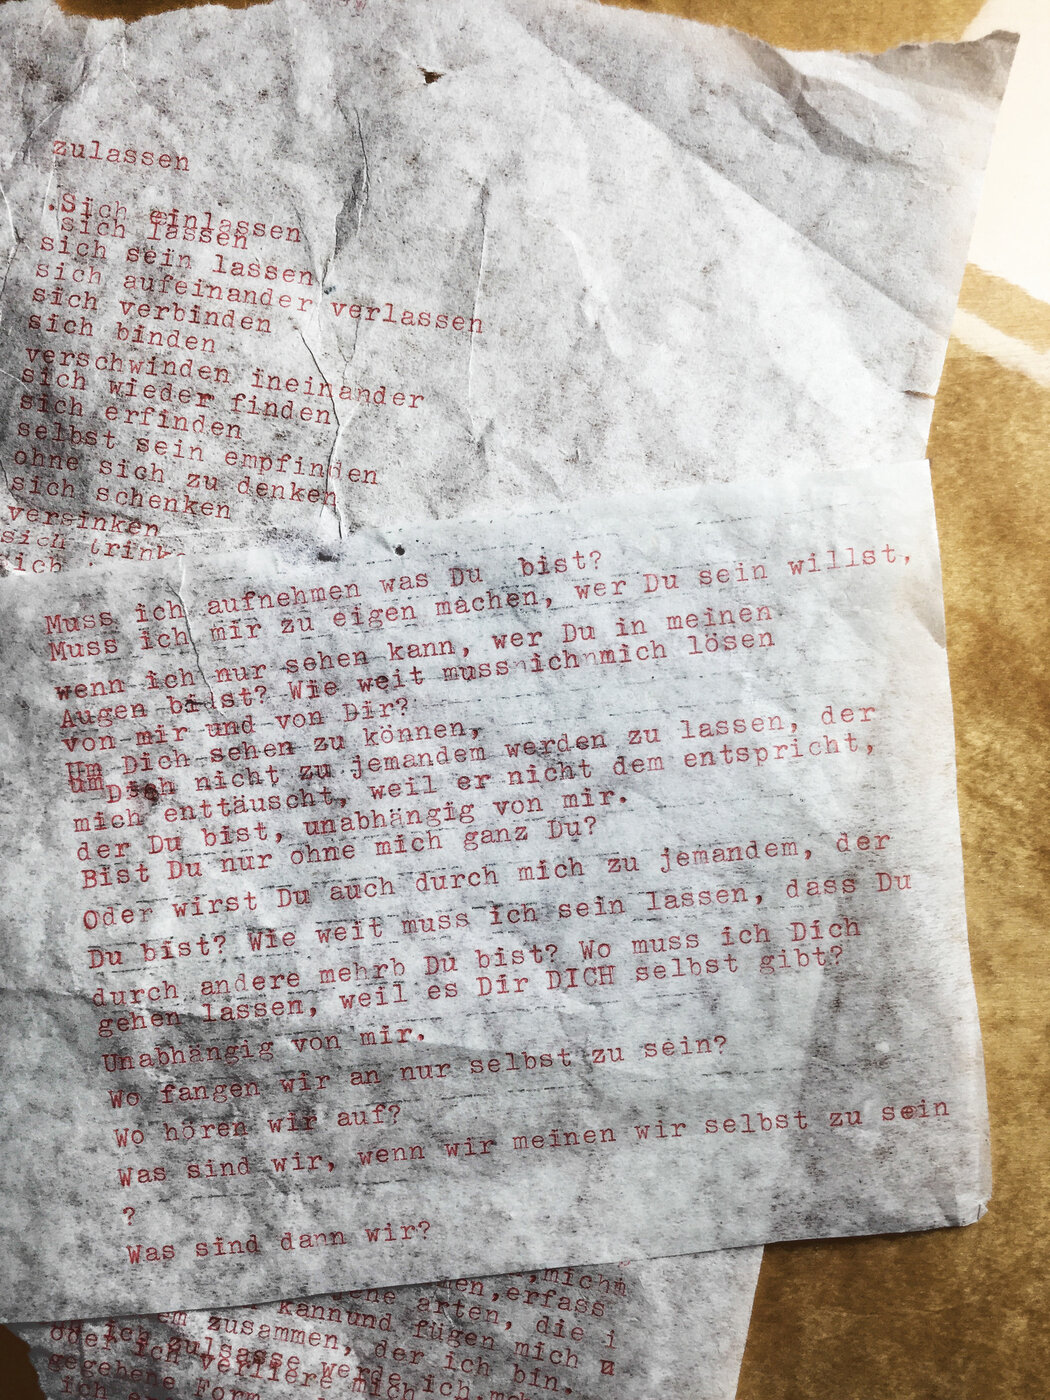 zulassen
.Sich einlassen
sich lassen
sich sein lassen
sich aufeinander verlassen
sich verbinden
sich binden
verschwinden ineinander
sich wieder finden
sich erfinden
selbst sein empfinden
ohne sich zu denken
sich schenken
versinken
sich
sich
Muss ich aufnehmen was Du bist?
Muss ich mir zu eigen machen, wer Du sein willst,
wenn ich nur sehen kann, wer Du in meinen
Augen bidst? Wie weit muss ich mich lösen
von mir und von Dir?
Um Dich sehen zu können,
Um Dich nicht zu jemandem werden zu lassen, der
mich enttäuscht, weil er nicht dem entspricht,
der Du bist, unabhängig von mir.
Bist Du nur ohne mich ganz Du?
Oder wirst Du auch durch mich zu jemandem, der
Du bist? Wie weit muss ich sein lassen, dass Du
durch andere mehrb Du bist? Wo muss ich Dich
gehen lassen, weil es Dir DICH selbst gibt?
Unabhängig von mir.
Wo fangen wir an nur selbst zu sein?
Wo hören wir auf?
Was sind wir, wenn wir meinen wir selbst zu sein
?
Was sind dann wir?
erfass
arten, die i
kannund fügen mich z
zusammen, der ich bin.
ich zulsasse werde ich
oder ich verliere mich
gegebene Form
ich